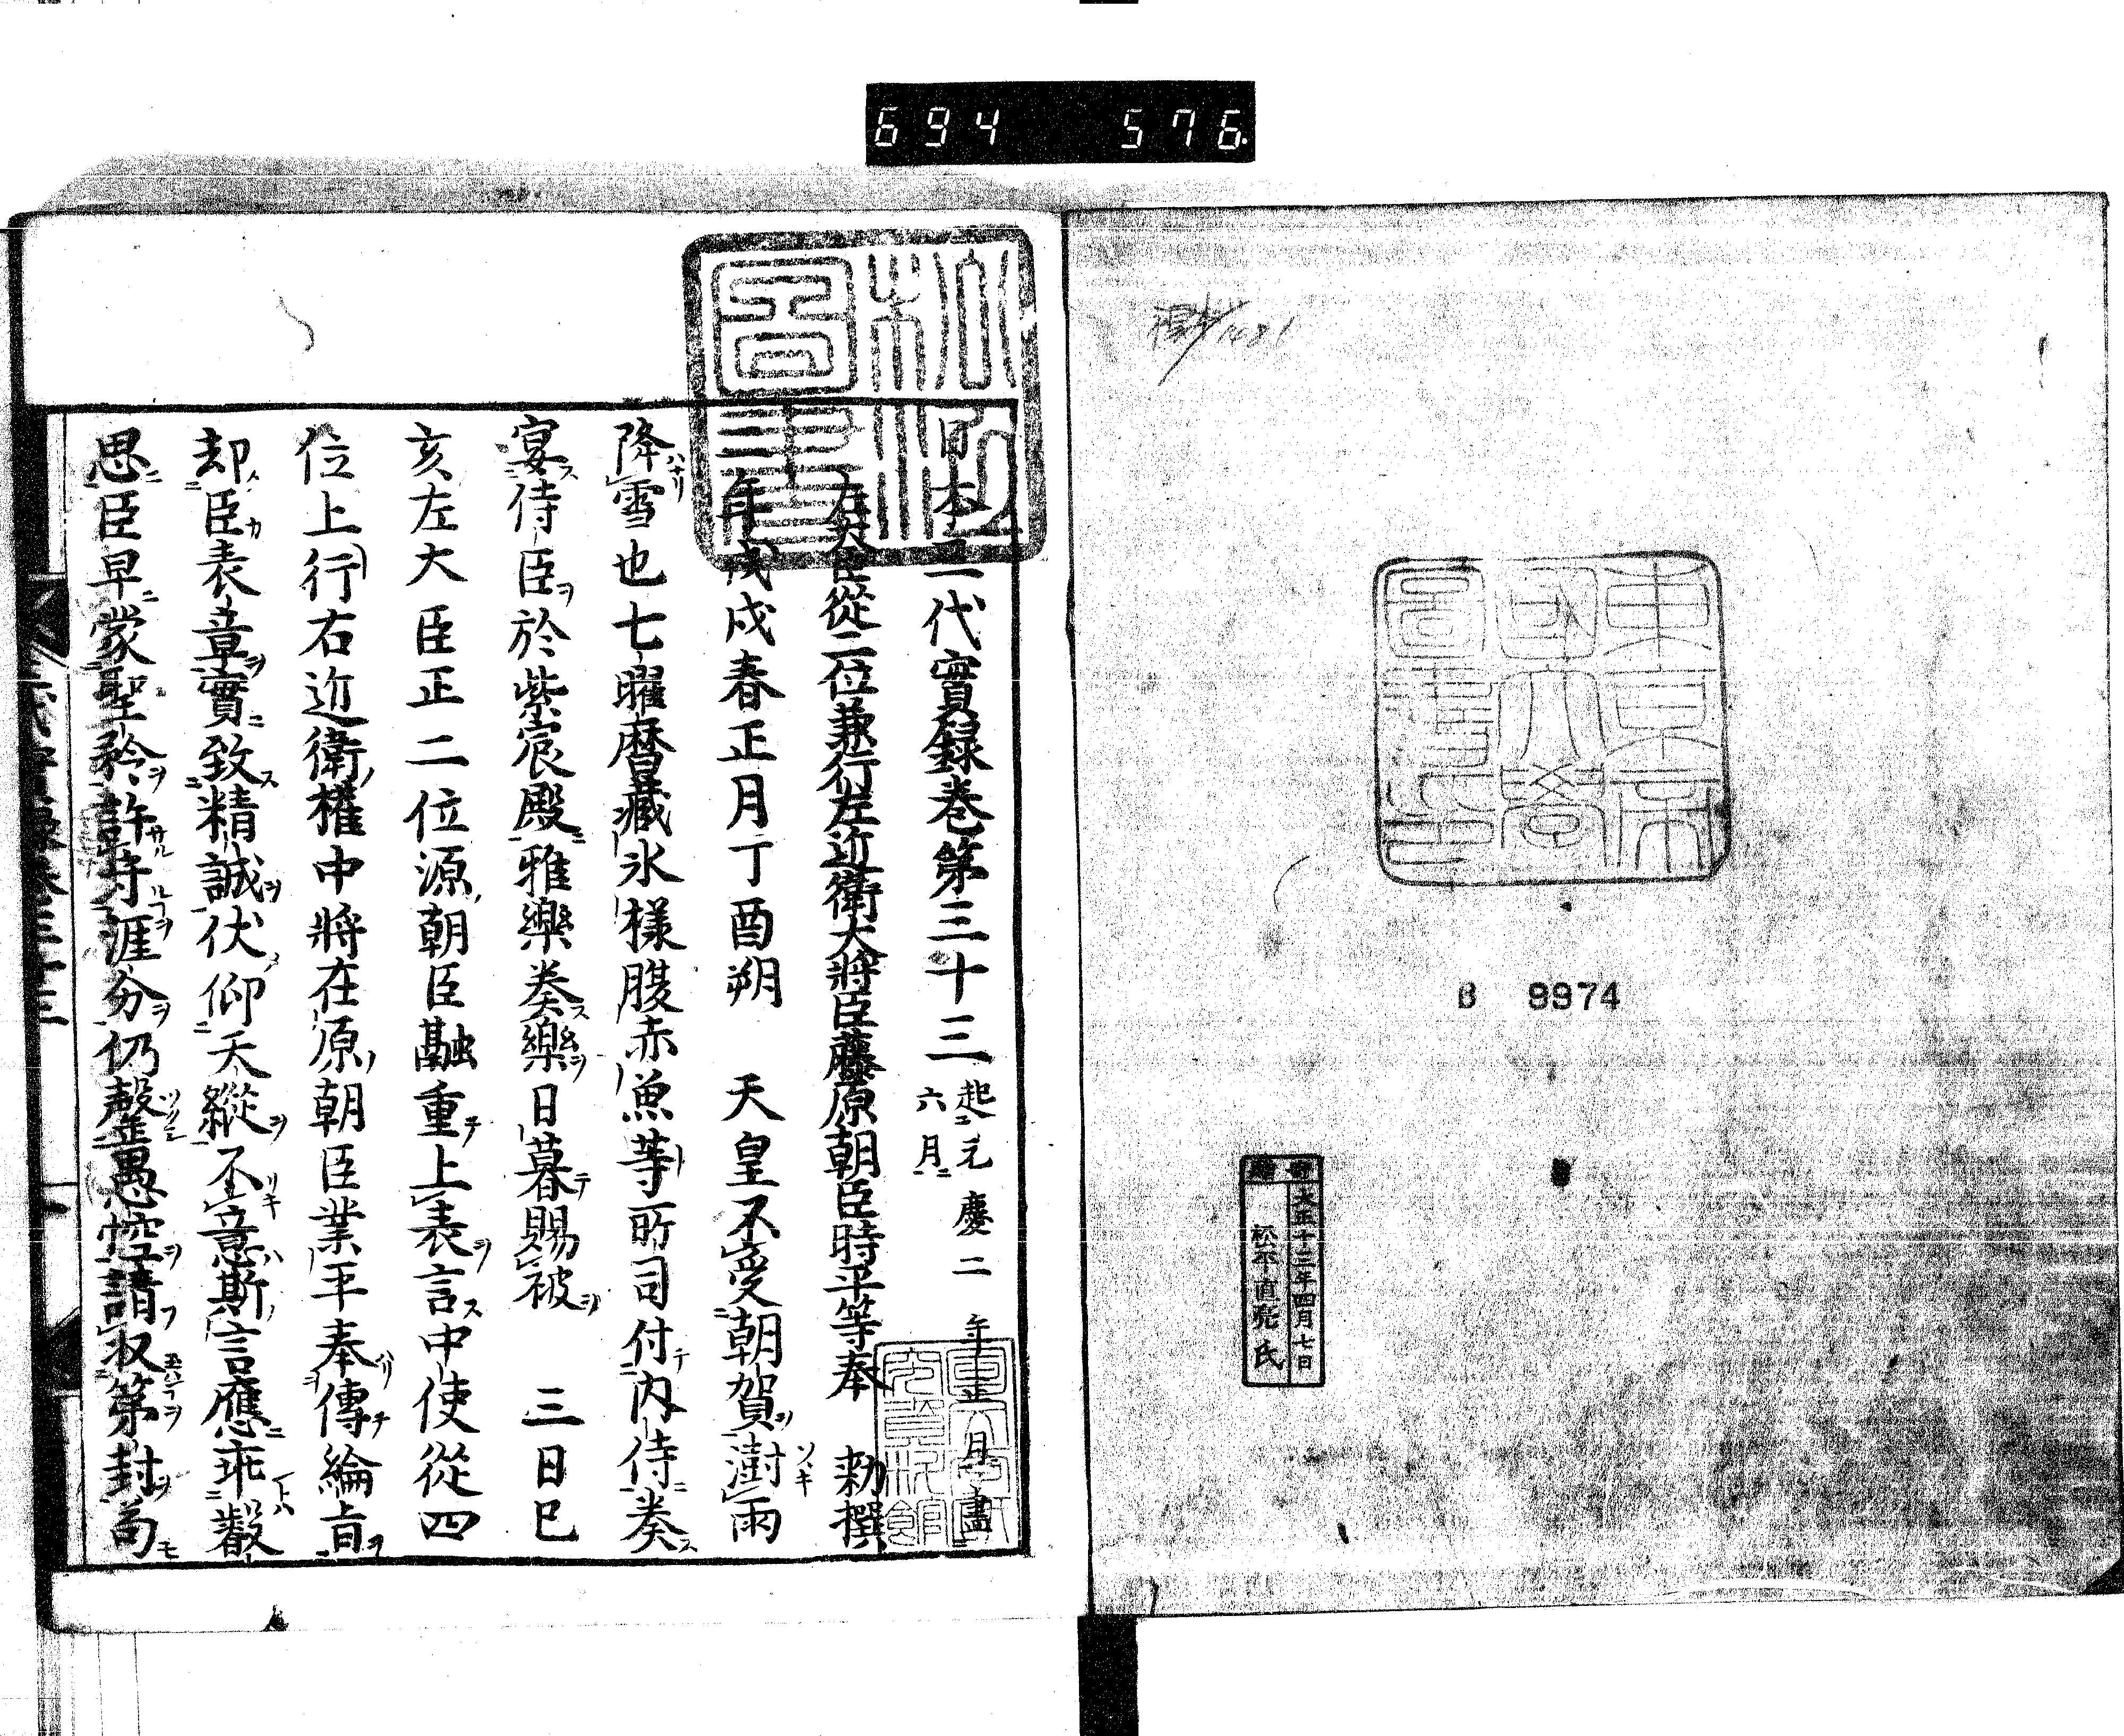 694 576
東京帝
國大學
圖書印
B 9974
寄贈
大正十三年四月七日
松平直亮氏
日本三代實録卷第三十三 起元慶二年正月盡六月
左大臣從二位兼行左近衛大將臣藤原朝臣時平等奉 勅撰
二年戊戌春正月丁酉朔 天皇不受朝賀澍雨
降雪也七曜暦藏氷様腹赤魚等所司付内侍奏
宴侍臣於紫宸殿雅樂奏樂日暮賜被 三日巳
亥左大臣正二位源朝臣融重上表言中使從四
位上行右近衛權中將在原朝臣業平奉傳綸旨
却臣表章實致精誠伏仰天縱丕意斯言應乖覈
思臣早蒙聖矜許守涯分仍罄愚悾請収第封苟